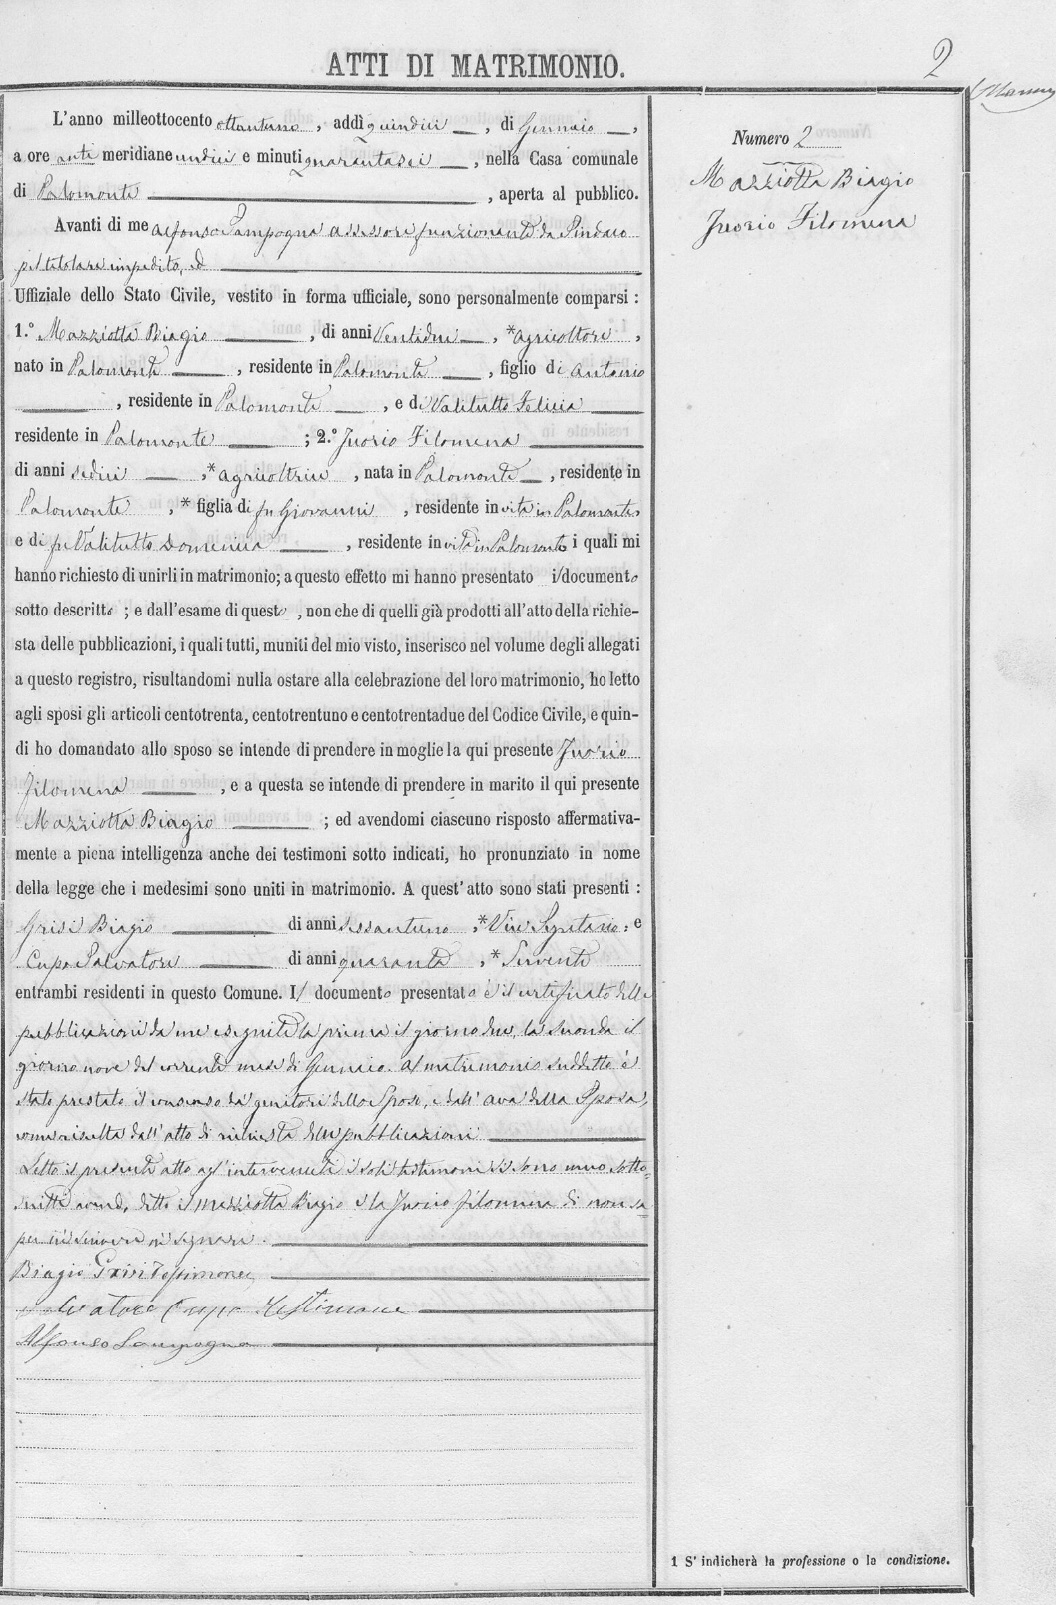 ATTI DI MATRIMONIO.
2
L'anno milleottocento ottantuno, addì quindici, di Gennaio,
a ore anti meridiane undici e minuti quarantasei, nella Casa comunale
di Palomonte, aperta al pubblico.
Avanti di me Alfonso Sampogna assessore funzionante da Sindaco
pel titolare impedito, ed
Uffiziale dello Stato Civile, vestito in forma ufficiale, sono personalmente comparsi:
1.° Mazziotta Biagio, di anni Ventidue, *agricoltore,
nato in Palomonte, residente in Palomonte, figlio di Antonio
, residente in Palomonte, e di Valitutto Felicia
residente in Palomonte; 2.° Iuorio Filomena
di anni sedici, *agricoltrice, nata in Palomonte, residente in
Palomonte, * figlia di fu Giovanni, residente in vita in Palomonte,
e di fu Valitutto Domenica, residente in vita in Palomonte i quali mi
hanno richiesto di unirli in matrimonio; a questo effetto mi hanno presentato il documento
sotto descritto; e dall'esame di questo, non che di quelli già prodotti all'atto della richie-
sta delle pubblicazioni, i quali tutti, muniti del mio visto, inserisco nel volume degli allegati
a questo registro, risultandomi nulla ostare alla celebrazione del loro matrimonio, ho letto
agli sposi gli articoli centotrenta, centotrentuno e centotrentadue del Codice Civile, e quin-
di ho domandato allo sposo se intende di prendere in moglie la qui presente Iuorio
Filomena, e a questa se intende di prendere in marito il qui presente
Mazziotta Biagio; ed avendomi ciascuno risposto affermativa-
mente a piena intelligenza anche dei testimoni sotto indicati, ho pronunziato in nome
della legge che i medesimi sono uniti in matrimonio. A quest'atto sono stati presenti:
Grisi Biagio di anni sessantuno, *Vice Segretario; e
Cupo Salvatore di anni quaranta, *Servente
entrambi residenti in questo Comune. Il documento presentato è il certificato delle
pubblicazioni da me eseguite la prima il giorno due, la seconda il
giorno nove del corrente mese di Gennaio. Al matrimonio suddetto è
stato prestato il consenso da' genitori dello Sposo, e dall'ava della Sposa,
come risulta dall'atto di richiesta delle pubblicazioni
Letto il presente atto agl'intervenuti i soli testimoni si sono meco sotto-
scritti avendo detto il Mazziotta Biagio e la Iuorio Filomena di non sa-
per nè scrivere nè segnare.
Biagio Grisi Testimone
Salvatore Cupo Testimone
Alfonso Sampogna
Numero 2
Mazziotta Biagio
Iuorio Filomena
1 S' indicherà la professione o la condizione.